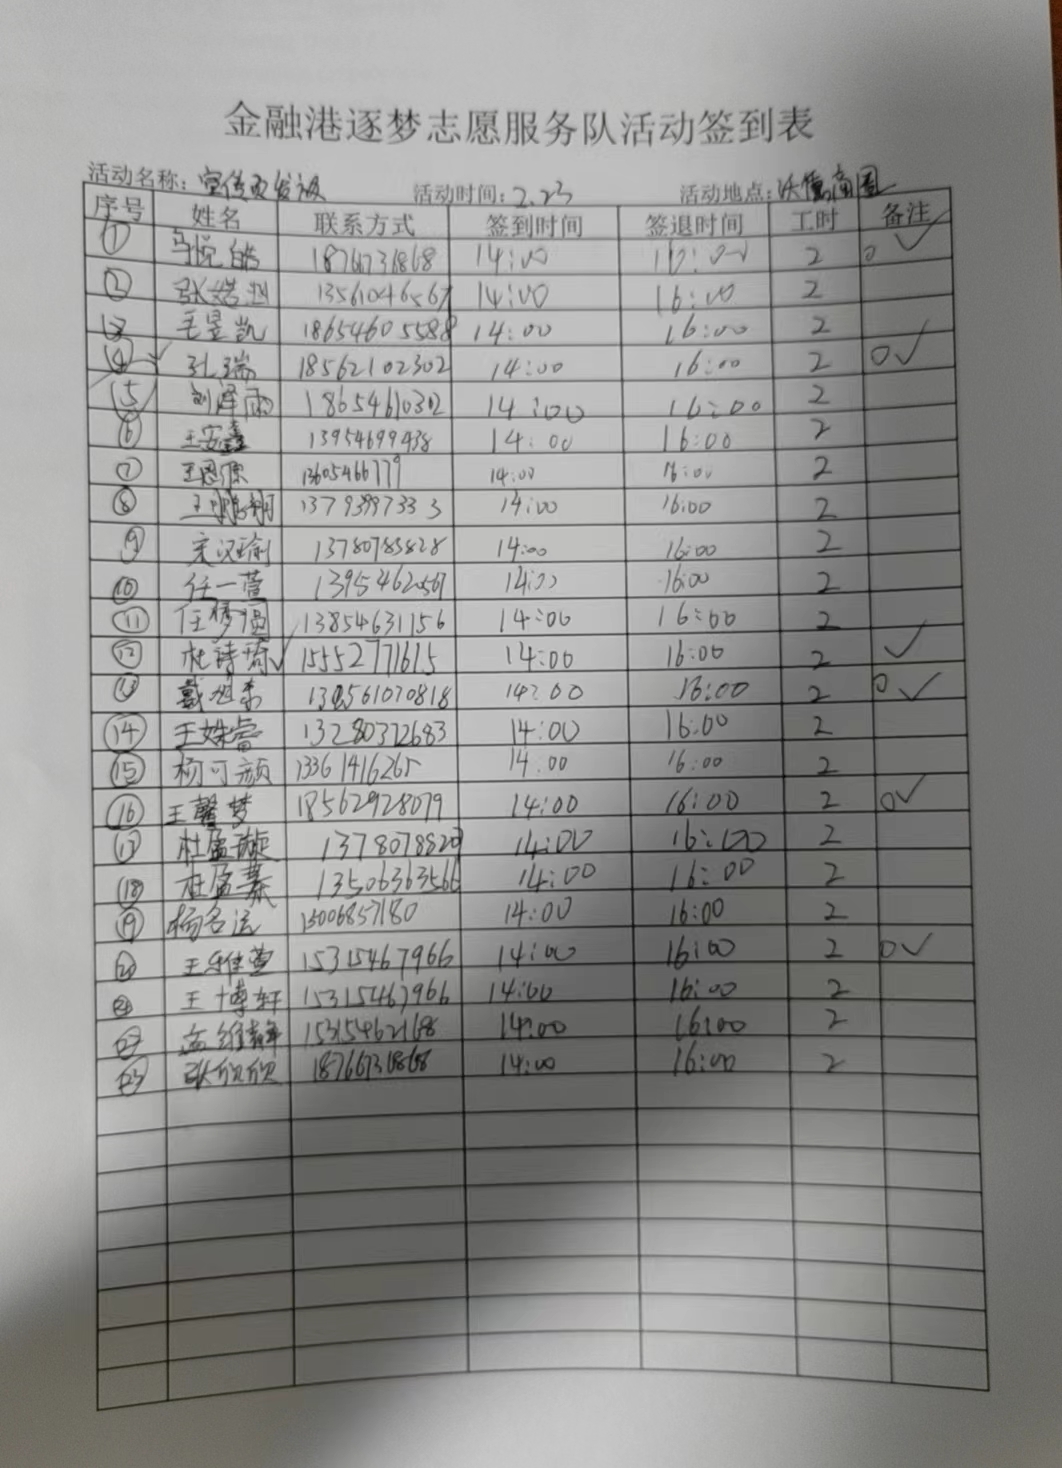 金融港逐梦志愿服务队活动签到表
活动名称: 宣传 活动时间: 2.23 活动地点: 商圈
序号 姓名 联系方式 签到时间 签退时间 工时 备注
① 14:00 2 0 ✓
② 张 14:00 16:00 2
13 毛昱凯 18654605588 14:00 16:00 2
④ ✓ 孔瑞 18562102302 14:00 16:00 2 0✓
⑤ 刘泽雨 14:00 16:00 2
⑥ 王安鑫 13954699438 14:00 16:00 2
⑦ 王恩源 13605466779 14:00 16:00 2
⑧ 14:00 16:00 2
⑨ 宋汉瑜 13780783828 14:00 16:00 2
⑩ 任一萱 14:00 16:00 2
⑪ 任梦 13854631156 14:00 16:00 2
⑫ 杜诗琦✓ 15552771615 14:00 16:00 2 ✓
⑬ 戴 14:00 16:00 2 0✓
⑭ 王姝睿 13280372683 14:00 16:00 2
⑮ 杨可颜 13361416265 14:00 16:00 2
⑯ 王馨梦 18562928079 14:00 16:00 2 0✓
⑰ 杜盈璇 14:00 16:00 2
⑱ 杜盈蓁 13506363566 14:00 16:00 2
⑲ 杨名远 15006857180 14:00 16:00 2
⑳ 王雅萱 15315467966 14:00 16:00 2 0✓
㉑ 王博轩 15315467966 14:00 16:00 2
㉒ 孟维 15315462168 14:00 16:00 2
㉓ 张欣欣 14:00 16:00 2